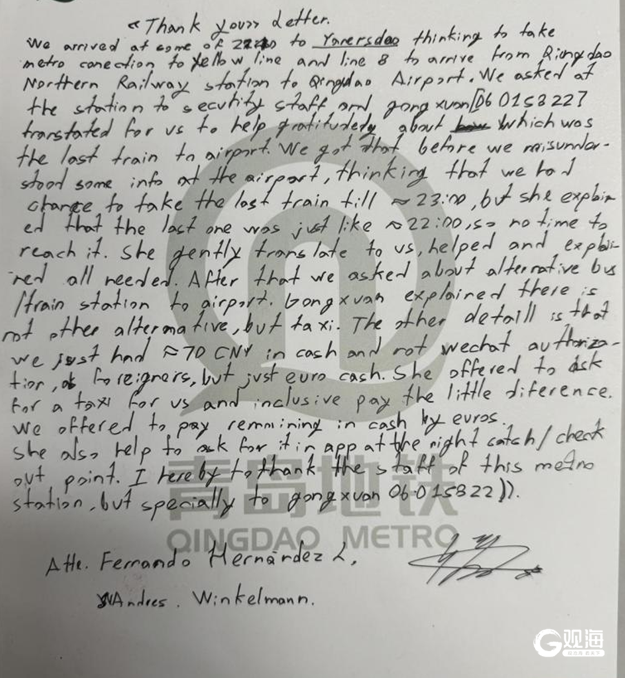 «Thank you» Letter.
We arrived at some of 22:40 to thinking to take
metro conection to yellow line and line 8 to arrive from Qingdao
Northern Railway station to Qingdao Airport. We asked at
the station to security staff and gongxuan [06015822]
translated for us to help about which was
the last train to airport. We got that before we misunder-
stood some info at the airport, thinking that we had
chance to take the last train till ≈ 23:00, but she explain-
ed that the last one was just like ≈ 22:00, so no time to
reach it. She gently translate to us, helped and explai-
ned all needed. After that we asked about alternative bus
/train station to airport. Gongxuan explained there is
not other alternative, but taxi. The other detaill is that
we just had ≈ 70 CNY in cash and not wechat authoriza-
tion, foreigners, but just euro cash. She offered to ask
for a taxi for us and inclusive pay the little diference.
We offered to pay remmining in cash by euros.
She also help to ask for it in app at the right catch/check
out point. I hereby to thank the staff of this metro
station, but specially to gongxuan 06-015822)).
青岛地铁
QINGDAO METRO
Atte. Fernando Hernández L.
Andres. Winkelmann.
G观海